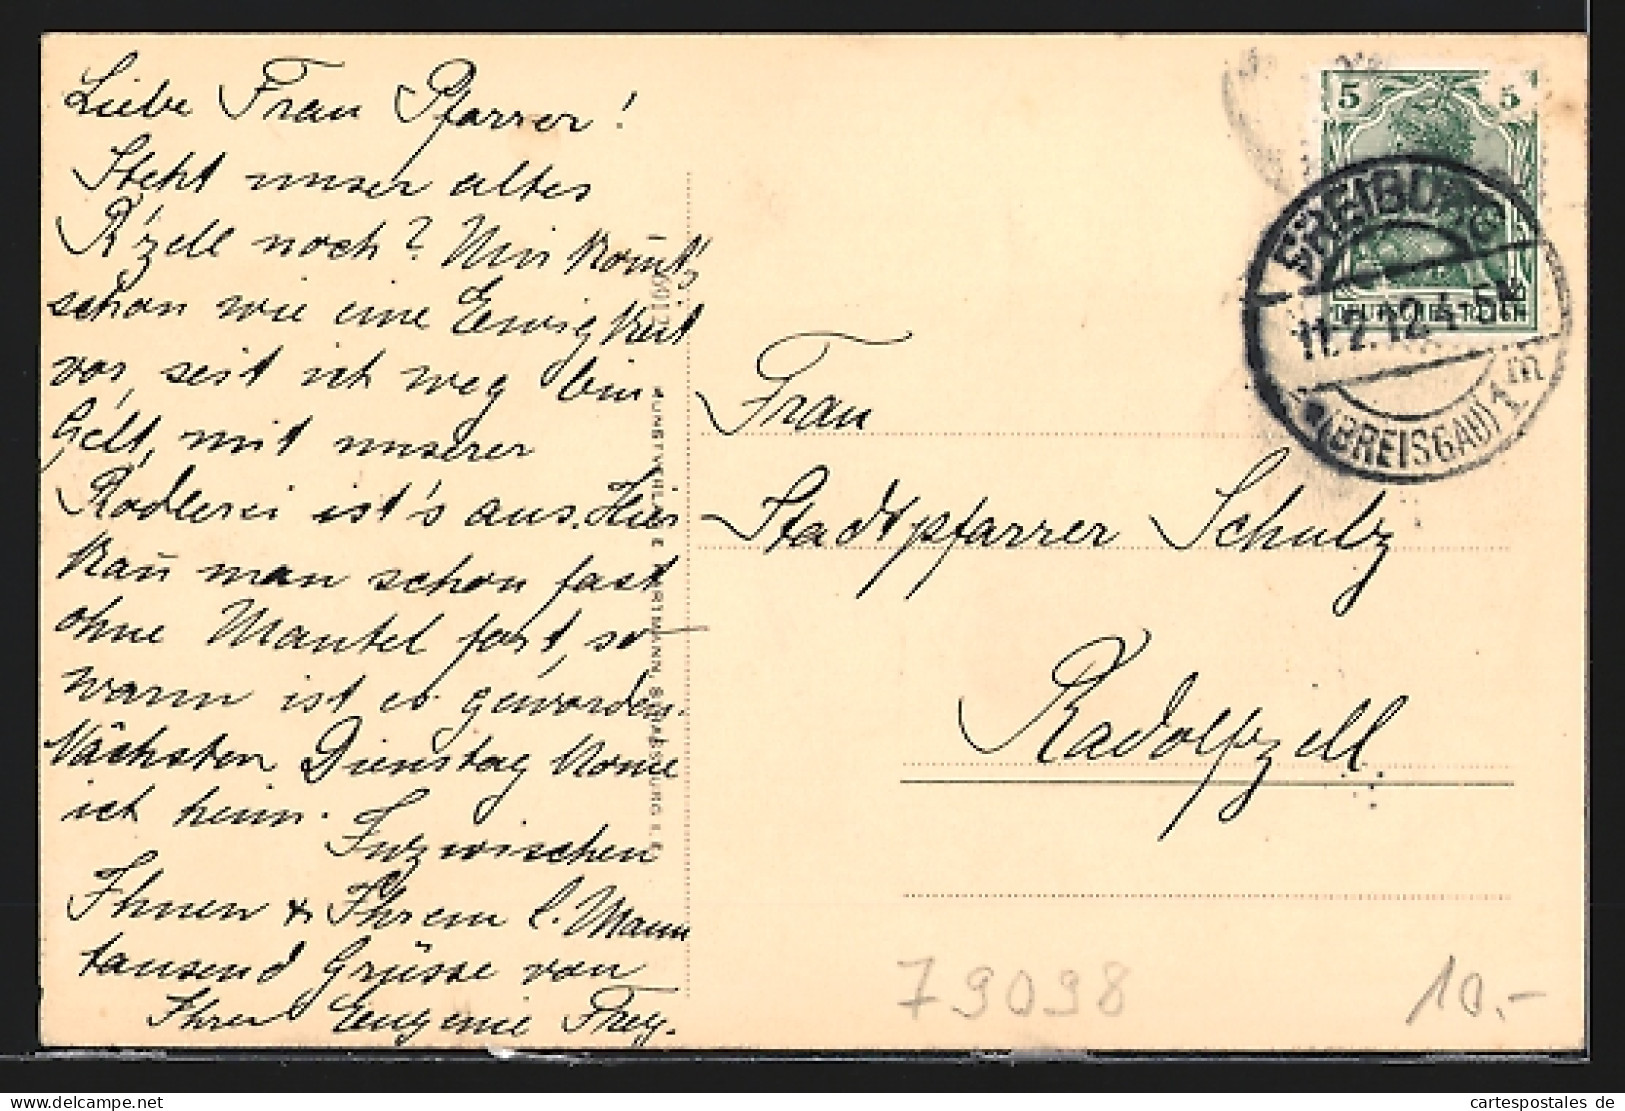 Liebe Frau Pfarrer!
Steht unser altes
R'zell noch? Mir kom̄t's
schon wie eine Ewigkeit
vor, seit ich weg bin
Gelt, mit unserer
Rodlerei ist's aus. Hier
kan̄ man schon fast
ohne Mantel fort, so
warm ist es geworden.
Nächsten Dienstag kom̄e
ich heim. Inzwischen
Ihnen & Ihrem l. Mann
tausend Grüsse von
Ihrer Eugenie Frey.
KUNSTVERLAG
5 5
DEUTSCHES REICH
FREIBURG
11.2.12.4-5N
*(BREISGAU) 1 m
Frau
Stadtpfarrer Schulz
Radolfzell.
79098
10.-
cartespostales de